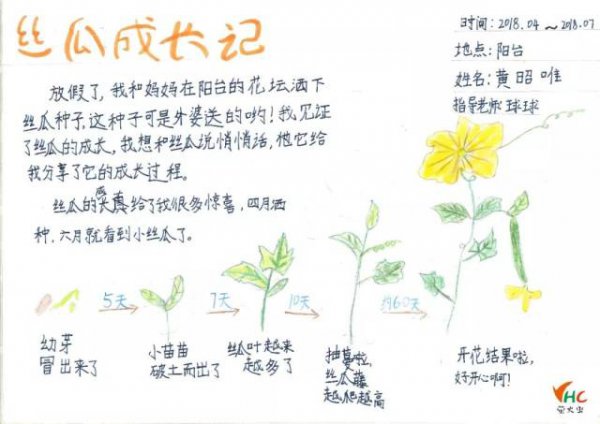 丝瓜成长记
时间:2018.04~2018.07
地点:阳台
姓名:黄昭唯
指导老师:球球
放假了,我和妈妈在阳台的花坛洒下
丝瓜种子,这种子可是外婆送的哟!我见证
了丝瓜的成长。我想和丝瓜说悄悄话,他它给
我分享了它的成长过程。
丝瓜的给了我很多惊喜,四月洒
种,六月就看到小丝瓜了。
5天
7天
10天
约60天
幼芽
冒出来了
小苗苗
破土而出了
丝瓜叶越来
越多了
抽蔓啦,
丝瓜藤
越爬越高
开花结果啦,
好开心啊!
HC
萤火虫